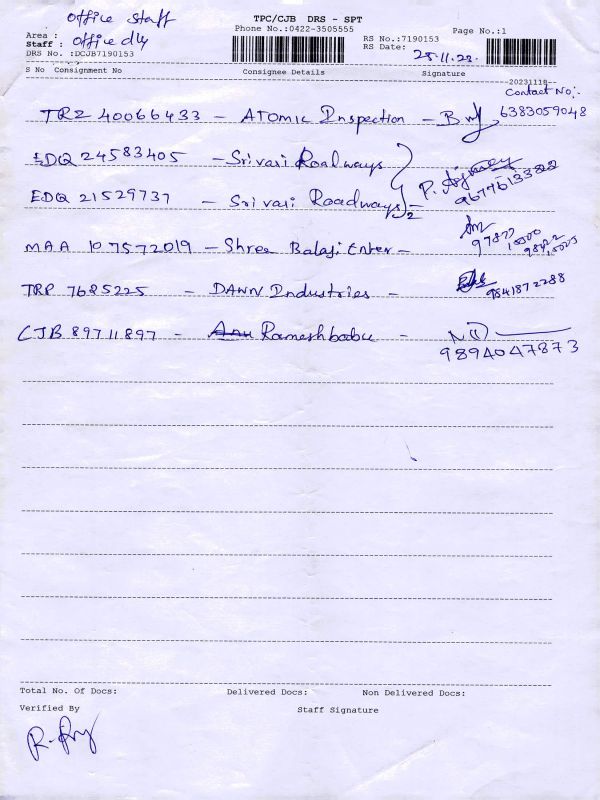 Office Staff
TPC/CJB DRS - SPT
Area : Phone No.:0422-3505555 Page No.:1
Staff : Office dly RS No.:7190153
DRS No. :DCJB7190153 RS Date: 25.11.23.
S No Consignment No Consignee Details Signature
--20231118--
Contact No:-
TRZ 40066433 - ATOMIC Inspection - 6383059048
EDQ 24583405 - Srivari Roadways
EDQ 21529737 - Srivari Roadways } 2 - 9677613322
MAA 107572019 - Shree Balaji Enter -
TRP 7685225 - DAWN Industries - 9841872288
CJB 89711897 - Rameshbabu -
9894047873
Total No. Of Docs: Delivered Docs: Non Delivered Docs:
Verified By Staff Signature